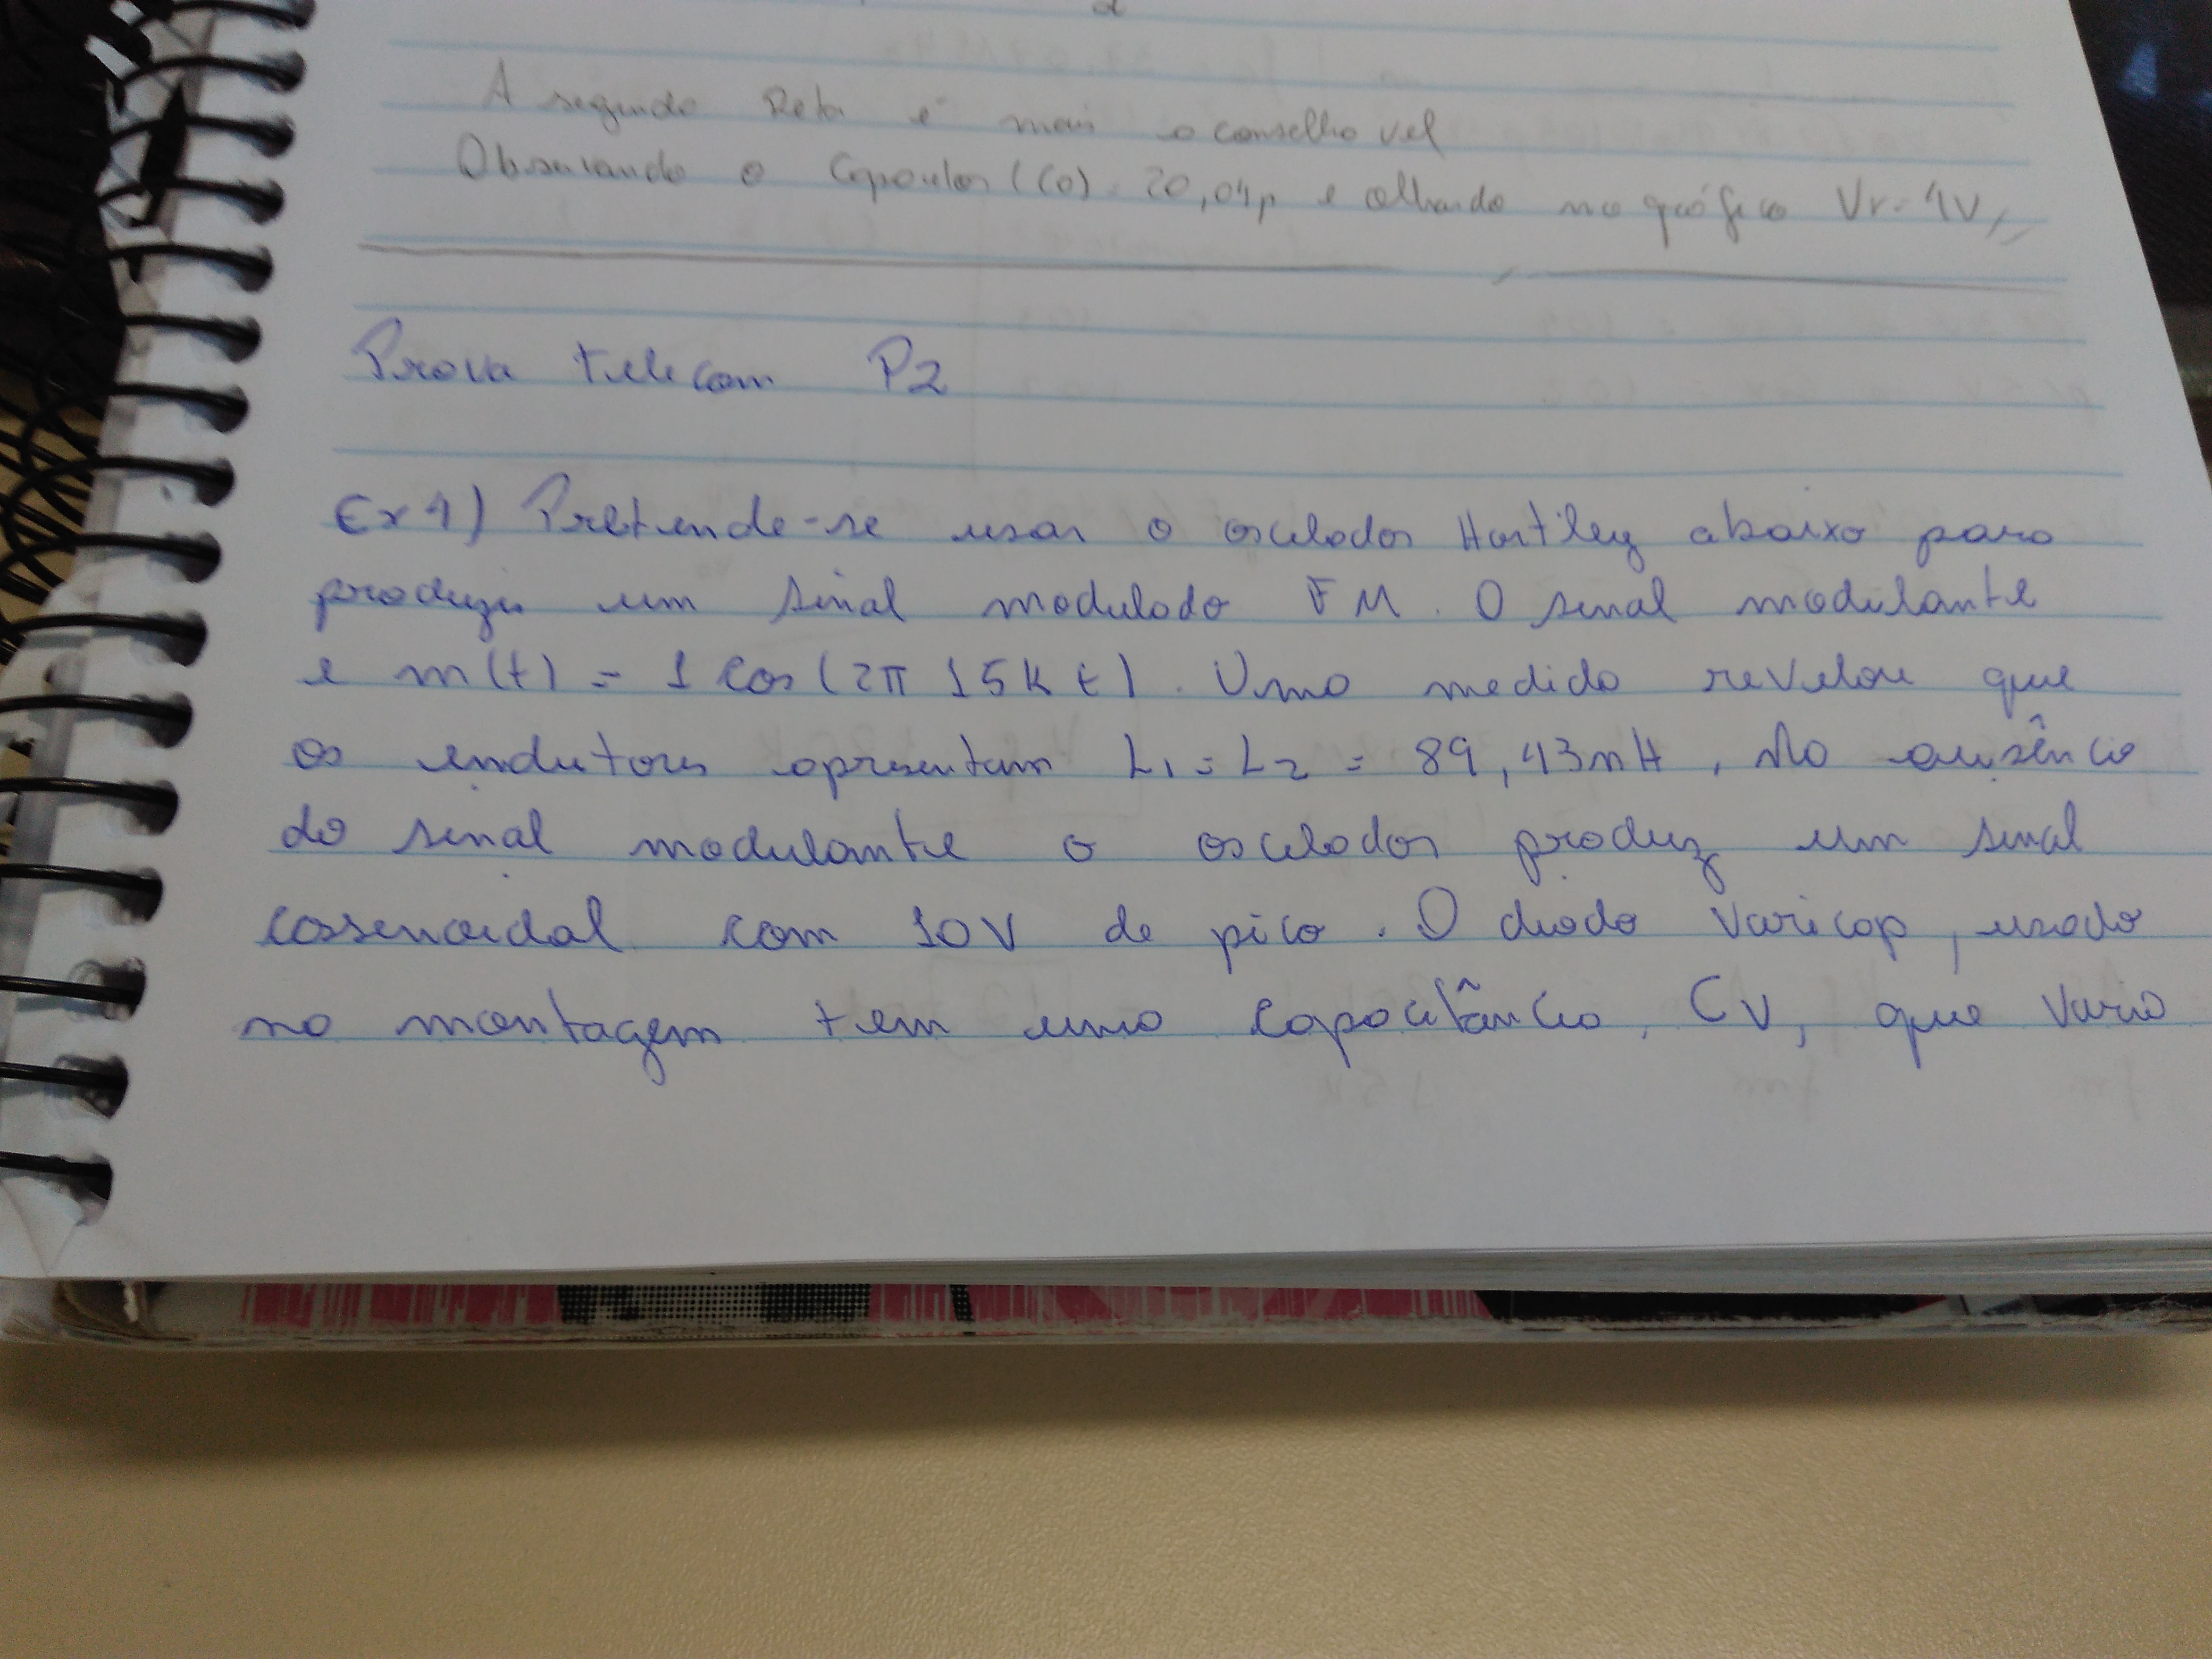 A segunda Reta é mais aconselhavel
Observando o Capacitor (C0) = 20,04p e olhando no gráfico Vr = 4V,,
Prova telecom P2
Ex 1) Pretende-se usar o oscilador Hartley abaixo para
produzir um sinal modulado FM. O sinal modulante
e m(t) = 1 cos(2π 15k t). Uma medida revelou que
os indutores apresentam L1 = L2 = 89,43nH, Na ausência
do sinal modulante o oscilador produz um sinal
cossenoidal com 10V de pico. O diodo Varicap, usado
na montagem tem uma capacitância, CV, que varia